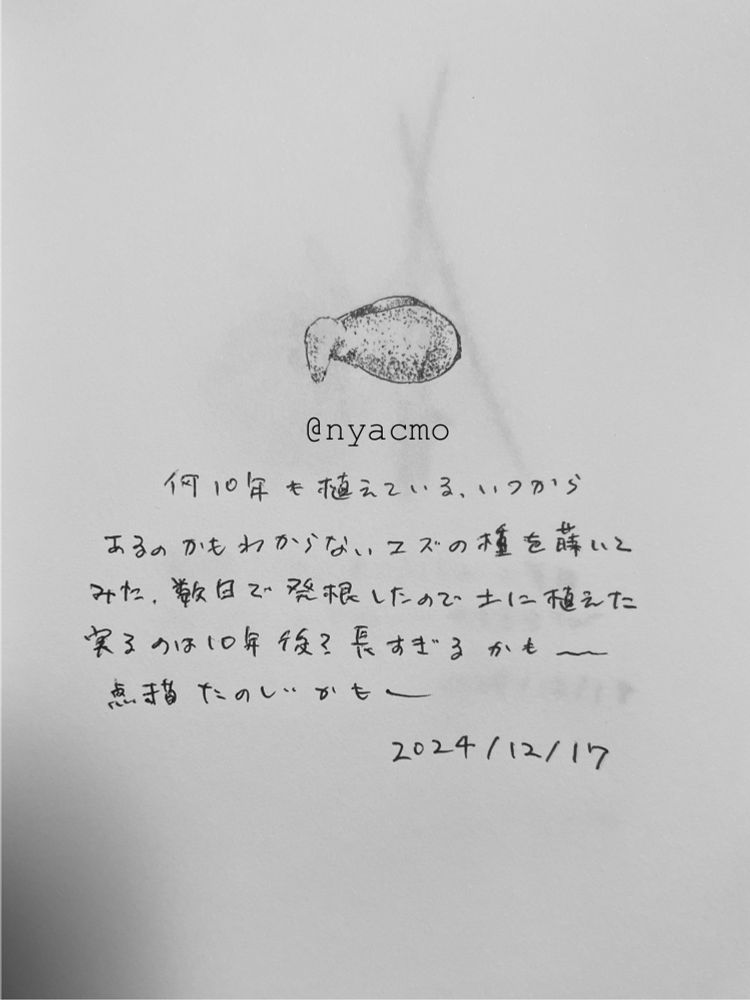 @nyacmo
何10年も植えている、いつから
あるのかもわからないユズの種を蒔いて
みた、数日で発根したので土に植えた
実るのは10年後?長すぎるかも〜
点描たのしいかも〜
2024/12/17